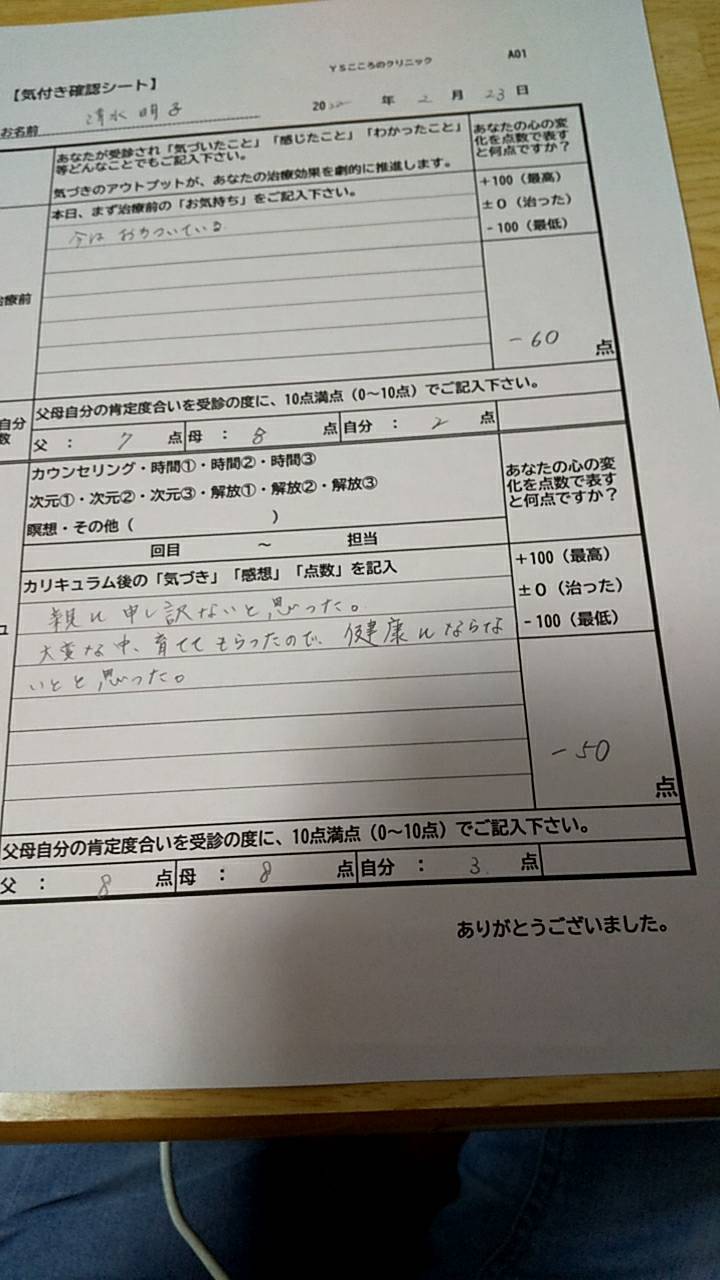 YSこころのクリニック
A01
【気付き確認シート】
お名前 清水 明子
20 年 2 月 23 日
あなたが受診され「気づいたこと」「感じたこと」「わかったこと」
等どんなことでもご記入下さい。
気づきのアウトプットが、あなたの治療効果を劇的に推進します。
あなたの心の変
化を点数で表す
と何点ですか？
本日、まず治療前の「お気持ち」をご記入下さい。
+100（最高）
±0（治った）
-100（最低）
今は おちついている
治療前
-60 点
父母自分の肯定度合いを受診の度に、10点満点（0〜10点）でご記入下さい。
自分
数
父 ： 7 点 母 ： 8 点 自分 ： 2 点
カウンセリング・時間①・時間②・時間③
次元①・次元②・次元③・解放①・解放②・解放③
瞑想・その他（ ）
あなたの心の変
化を点数で表す
と何点ですか？
回目 〜 担当
カリキュラム後の「気づき」「感想」「点数」を記入
+100（最高）
±0（治った）
-100（最低）
親に申し訳ないと思った。
大変な中、育ててもらったので、健康にならな
いとと思った。
ュ
-50
点
父母自分の肯定度合いを受診の度に、10点満点（0〜10点）でご記入下さい。
父 ： 8 点 母 ： 8 点 自分 ： 3 点
ありがとうございました。